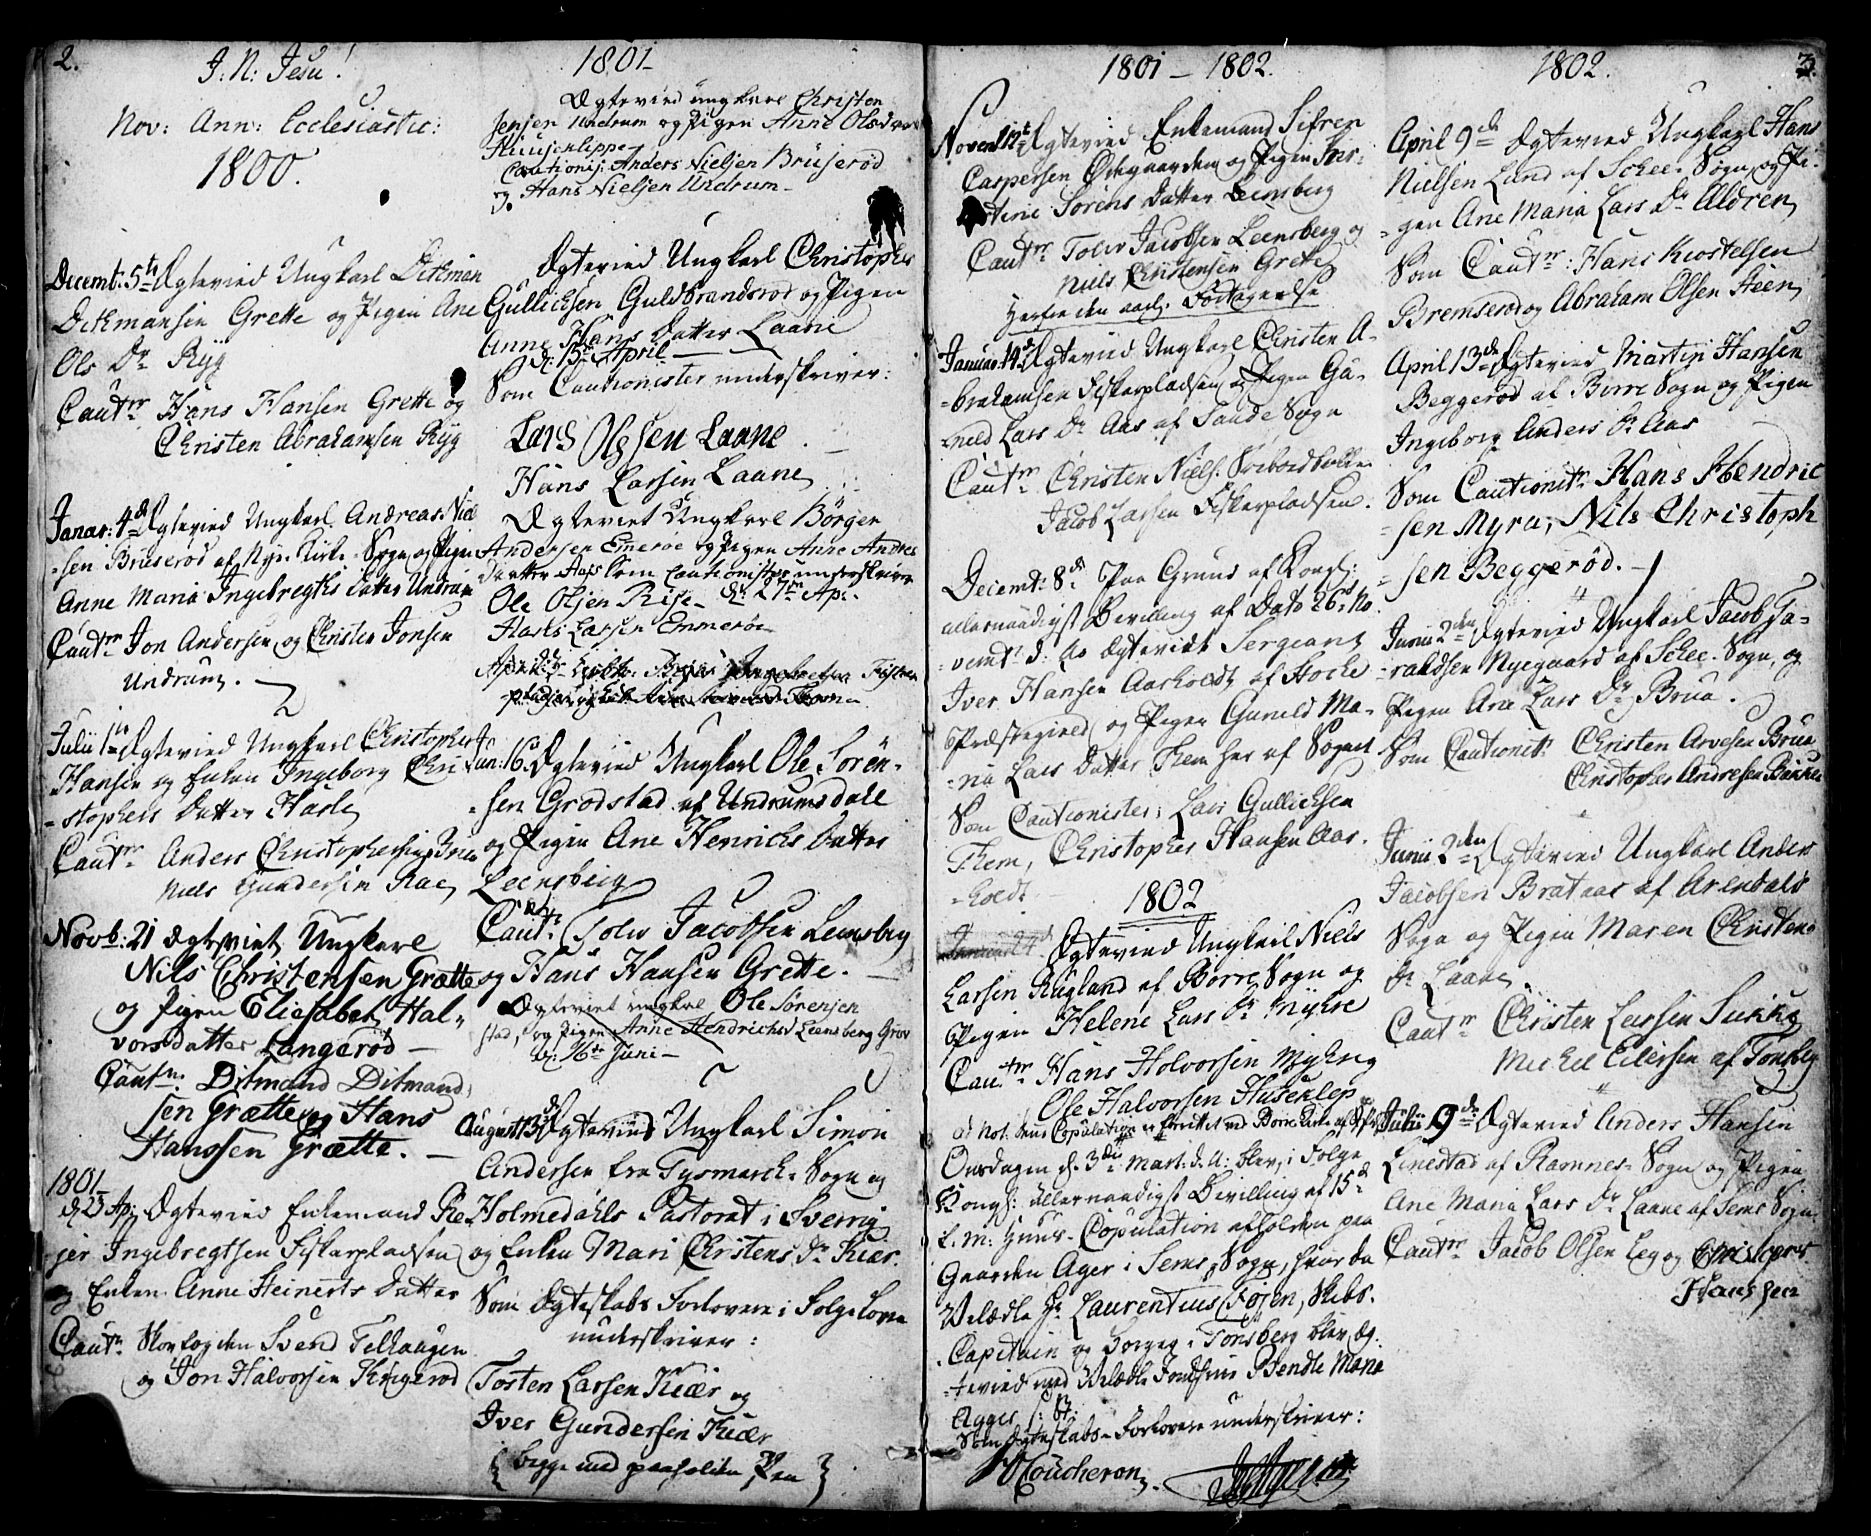 2.
J: N: Jesu!
Nov: Ann: Ecclesiastic:
1800.
Decemb: 5te Ægtevied Ungkarl Ditman
Ditmansen Grette og Pigen Ane
Ols Dr Ryg
Cautnr Hans Hansen Grette og
Christen Abrahamsen Ryg
Januar: 4de Ægtevied Ungkarl Andreas Niel
-sen Bruserød af Nye-Kirke-Sogn og Pigen
Anne Maria Ingebregths Datter Undrum
Cautnr Jon Andersen og Christen Jonsen
Undrum.
Julii 1te Ægtevied Ungkarl Christopher
Hansen og Enken Ingeborg Chri
-stophers Datter Hasle
Cautnr Anders Christophersen
Niels Gundersen Rae
Novb: 21 Ægteviet Ungkarl
Nils Christensen Grætte
og Pigen Eliesabet Hal-
vorsdatter Langerød
Cautn: Ditmand Ditmand
sen Grætte og Hans
Hanssen Grætte.
1801
d: 23 Ap: Ægtevied Enkemand Re
jer Ingebregtsen Fiskerpladsen
og Enken Anne Steinerts Datter
Cautn: Skovfogden Svend Telhaugen
og Jon Halvorsen Krigerød
1801
Ægtevied ungkarl Christen
Jensen Undrum og Pigen Anne Olsdatter
Huuseklippe
Cautionis: Anders Nielsen Brüserød
og Hans Nielsen Undrum
Ægtevied Ungkarl Christopher
Gullichsen Guldbrandsrød og Pigen
Anne Hans Datter Laane
d: 15de April
Som Cautionister underskriver:
Lars Olssen Laane
Hans Larsen Laane
Ægteviet Ungkarl Börgen
Andersen Emerøe og Pigen Anne Andres
Datter Aas Som Cautionister underskriver
Ole Olsen Rise d: 27de Ap:
Lassen Emmerøe
Jun: 16. Ægtevied Ungkarl Ole Sören-
-sen Grodstad af Undrumsdall
og Pigen Ane Henrichs Datter
Leensberg
Cautn: Tolv Jacobsen Leensberg
og Hans Hansen Grette.
Ægteviet ungkarl Ole Sörensen
stad, og Pigen Anne Hendrichsd Leensberg Grov
d: 16de Juni
August 13de Ægtevied Ungkarl Simon
Andersen fra Tysmarch-Sogn og
Holmedahls Pastorat i Sverrig
og Enken Mari Christens Dr Kiær.
Som Ægteskabs Forlovere i Følge Loven
underskriver:
Torsten Larsen Kiær og
Iver Gundersen Kiær
begge med paaholden Pen
1801 - 1802.
Novem 12te Ægtevied Enkemand Sifren
Caspersen Ödegaarden og Pigen Kir-
-stine Sörens Datter Leensberg
Cautnr Tolv Jacobsen Leensberg og
Niels Christensen Grette
Januar 14de Ægtevied Ungkarl Christen A-
-brahamsen Fiskerpladsen og Pigen Gu-
-nild Lars Dr Aas af Sande Sogn
Cautnr Christen Niels:
Jacob Larsen Fiskerpladsen.
Decemb: 8de Paa Grund af Kongl:
allernaadigst Bevilling af Dato 26de No
-vemb: d: Aa Ægteviedt Sergeant
Iver Hansen Aasholdt af Hocke
Præstegield og Pigen Gunild Ma-
-ria Lars Datter Them her af Sognet
Som Cautionister: Lars Gullichsen
Them, Christopher Hansen Aas-
-holdt
1802
Januar 24de Ægtevied Ungkarl Niels
Larsen Rugland af Borre Sogn og
Pigen Helene Lars Dr Myhre
Cautnr Hans Holvorsen Myhre
Ole Halvorsen Huseklep
Not: denne Copulation er forrettet ved Borre Kirke
Onsdagen d. 3die Mart: d. A: blev, i Følge
Kongl: allernaadigst Bevilling af 15de
f. M: Huus-Copulation afholden paa
Gaarden Ager i Sems-Sogn, hvor da
Velædle Hr Laurentius Föien, Skibs-
Capitain og Borger i Tonsberg blev Æg-
-tevied med Velædle Jomfrue Bendte Maria
Agger
Som Ægteskabs-Forlovere underskriver:
Coucheron
1802.
3.
April 9de Ægtevied Ungkarl Hans
Nielsen Lund af Schee-Sogn og Pi-
-gen Ane Maria Lars Dr Aldren
Som Cautnr: Hans Kiostelsen
Bremserød og Abraham Olsen Steen
April 13de Ægtevied Martin Hansen
Beggerød af Borre Sogn og Pigen
Ingeborg Anders Dr Aas
Som Cautionitr Hans Hendric
-sen Myra, Nils Christoph
-sen Beggerød.
Junii 2den Ægtevied Ungkarl Jacob Ta-
-raldsen Nyegaard af Schee-Sogn, og
Pigen Ane Lars Dr Brua.
Som Cautionitr Christen Arvesen Brua
Christopher Andresen Bakken
Junii 2den Ægtevied Ungkarl Anders
Jacobsen Brataas af Arendals
Sogn og Pigen Maren Christens
Dr Laane
Cautnr Christen Larsen
Michel Eilersen af Tonsberg
Julii 9de Ægtevied Anders Hansen
Linestad af Ramnes-Sogn og Pigen
Ane Maria Lars Dr Laane af Sems Sogn
Cautnr Jacob Olsen Eeg og Christopher
Hanssen